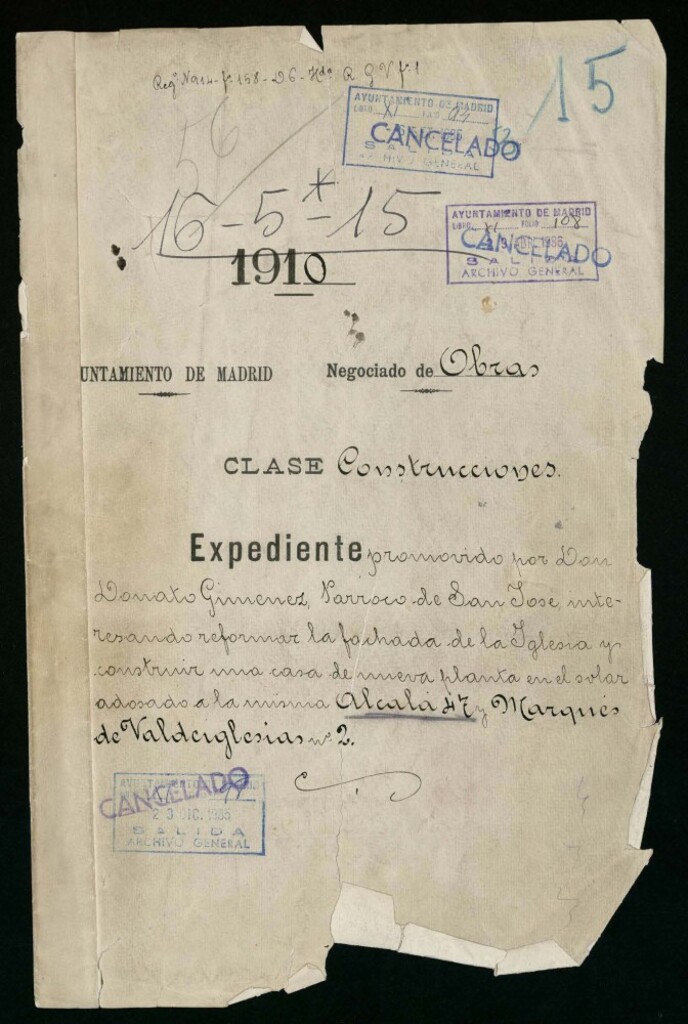 Regº Nº914- fº 158- D6- Hdª R G V fº1
15
56
AYUNTAMIENTO DE MADRID
LIBRO XI FOLIO 94
CANCELADO
SALIDA
ARCHIVO GENERAL
16-5*-15
AYUNTAMIENTO DE MADRID
LIBRO XI FOLIO 108
CANCELADO
ABR. 1986
SALIDA
ARCHIVO GENERAL
1910
UNTAMIENTO DE MADRID Negociado de Obras
CLASE Construcciones.
Expediente promovido por Don
Donato Gimenez, Parroco de San Jose, inte-
resando reformar la fachada de la Iglesia y
construir una casa de nueva planta en el solar
adosado a la misma Alcalá 47 y Marqués
de Valdeiglesias nº 2.
CANCELADO
23 DIC. 1985
SALIDA
ARCHIVO GENERAL